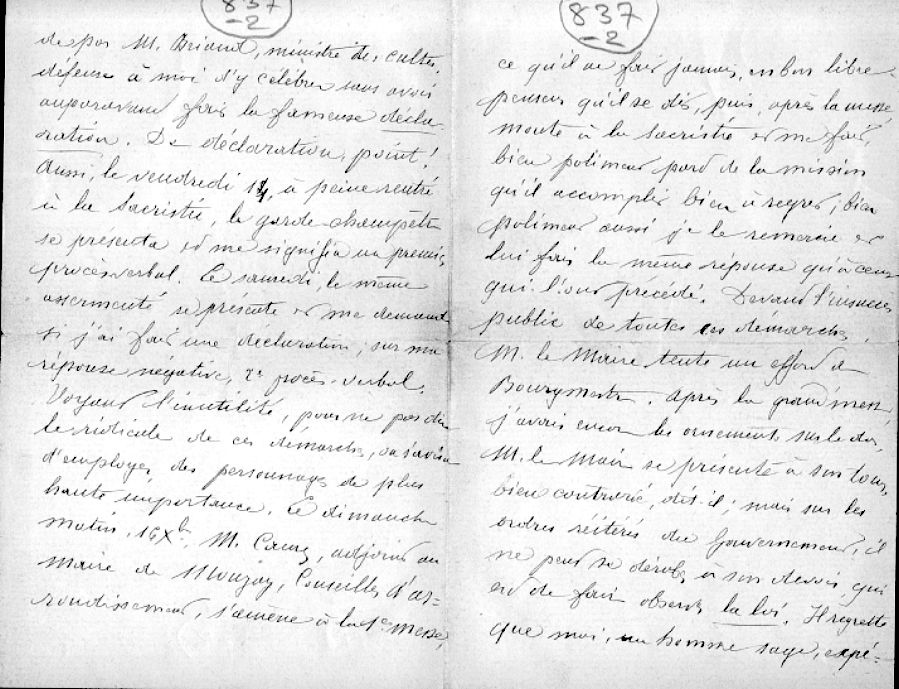 837
-2
de par M. Briand, ministre des cultes,
défense à moi d'y célébrer sans avoir
auparavant fait la fameuse décla-
ration. De déclaration, point!
Aussi, le vendredi 14, à peine rentré
à la Sacristie, le garde-champêtre
se présenta et me signifia un premier
procès-verbal. Le samedi, le même
assermenté se présente et me demande
si j'ai fait une déclaration, sur ma
réponse négative, 2e procès-verbal.
Voyant l'inutilité, pour ne pas dire
le ridicule de ces démarches, on s'avisa
d'employer des personnages de plus
haute importance. Le dimanche
matin, 16 Xbre, M. adjoint au
Maire de Mouzay, Conseiller d'ar-
rondissement, s'amène à la 1e Messe,
837
-2
ce qu'il ne fait jamais, en bon libre-
penseur qu'il se dit, puis, après la messe
monte à la sacristie et me fait,
bien poliment part de la mission
qu'il accomplit bien à regret; bien
poliment aussi je le remercie et
lui fais la même réponse qu'à ceux
qui l'ont précédé. Devant l'insuccès
public de toutes ces démarches,
M. le Maire tente un effort de
Bourgmestre. Après la grand'messe,
j'avais encore les ornements sur le dos,
M. le Maire se présente à son tour,
bien contrarié, dit-il; mais sur les
ordres réitérés du Gouvernement, il
ne peut se dérober à son devoir, qui
est de faire observer la loi. Il regrette
que moi, un homme sage, expé-